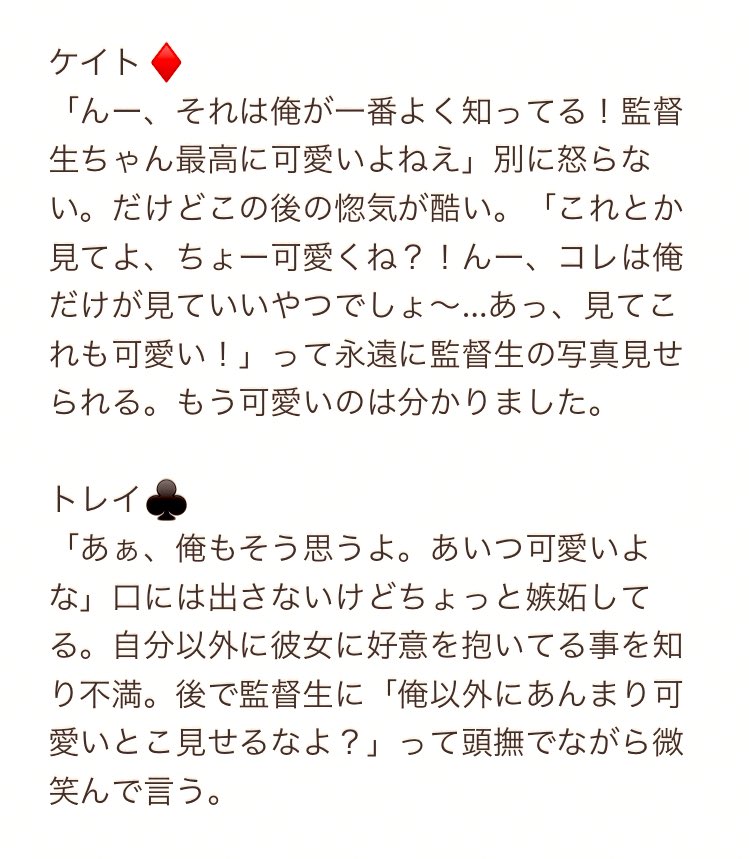 ケイト♦️
「んー、それは俺が一番よく知ってる！監督
生ちゃん最高に可愛いよねえ」別に怒らな
い。だけどこの後の惚気が酷い。「これとか
見てよ、ちょー可愛くね？！んー、コレは俺
だけが見ていいやつでしょ〜...あっ、見てこ
れも可愛い！」って永遠に監督生の写真見せ
られる。もう可愛いのは分かりました。
トレイ♣️
「あぁ、俺もそう思うよ。あいつ可愛いよ
な」口には出さないけどちょっと嫉妬して
る。自分以外に彼女に好意を抱いてる事を知
り不満。後で監督生に「俺以外にあんまり可
愛いとこ見せるなよ？」って頭撫でながら微
笑んで言う。